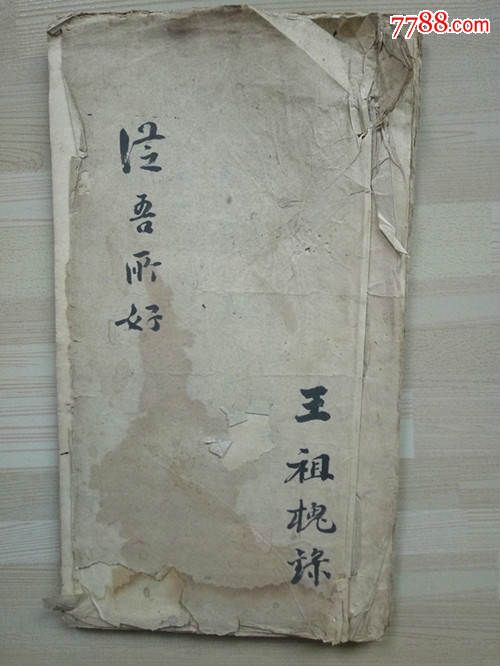 7788.com
從吾所好
王祖槐錄